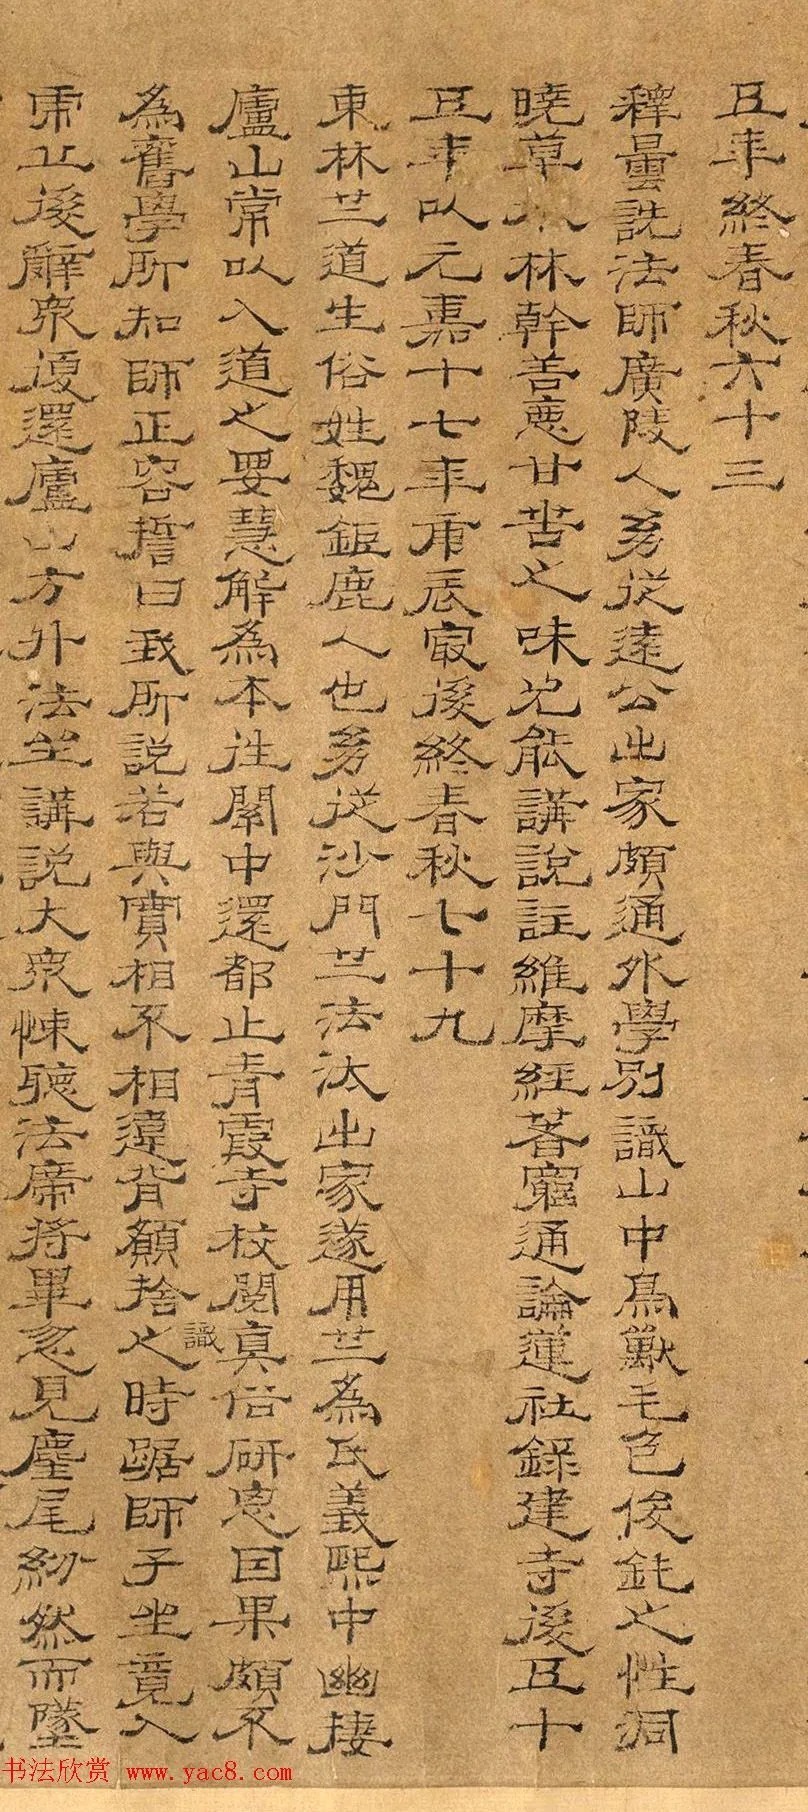 五年終春秋六十三
釋曇詵法師廣陵人㓜從遠公出家頗通外學別識山中鳥獸毛色俊鈍之性洞
曉草木林幹善惡甘苦之味尤能講說註維摩經著窮通論蓮社錄建寺後五十
五年以元嘉十七年庚辰㝡後終春秋七十九
東林竺道生俗姓魏鉅鹿人也㓜從沙門竺法汰出家遂用竺為氏義熙中幽棲
廬山常以入道之要慧解為本往關中還都止青霞寺校閱真俗研思因果頗不
為舊學所知師正容誓曰我所說若與實相不相違背願捨之時踞師子坐竟入
虎丘後辭眾復還廬山方外法坐講說大眾悚聽法席將畢忽見麈尾紛然而墜
識
书法欣赏 www.yac8.com